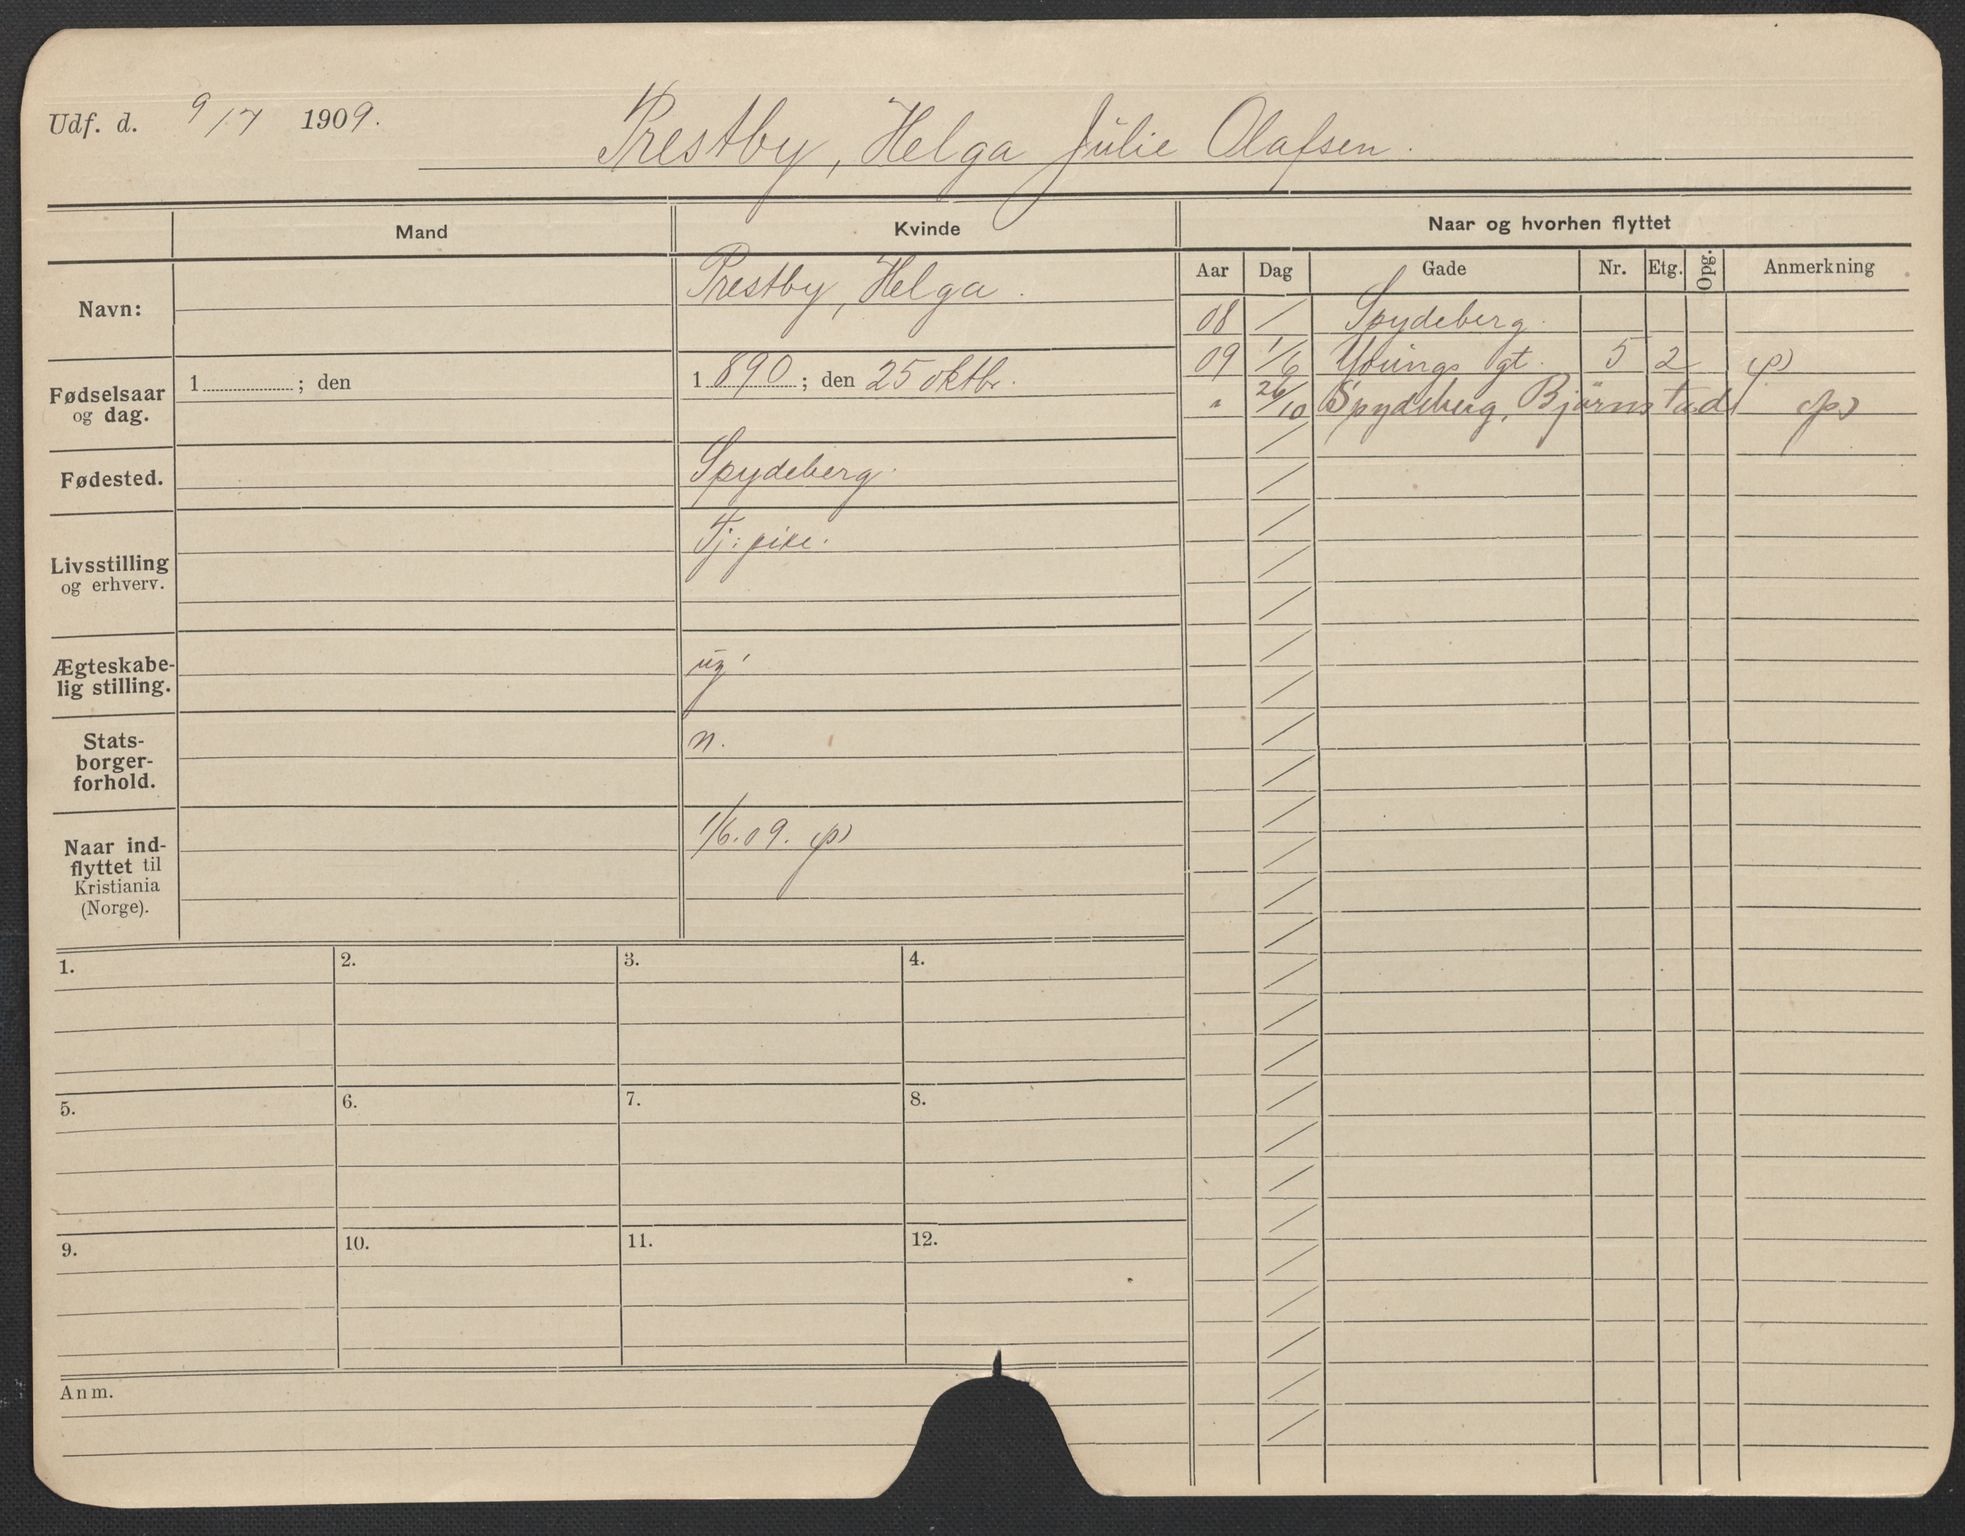 Udf. d. 9/7 1909. Prestby, Helga Julie Olafsen.
Mand Kvinde Naar og hvorhen flyttet
Aar Dag Gade Nr. Etg. Opg. Anmerkning
Navn: Prestby, Helga.
08 / Spydeberg.
09 1/6 Youngs gt. 5 2 (p)
" 26/10 Spydeberg, Bjørnstad (p)
Fødselsaar
og dag.
1 ; den 1890; den 25 oktbr.
Fødested. Spydeberg.
Livsstilling
og erhverv.
Tj: pike.
Ægteskabe-
lig stilling.
ug.
Stats-
borger-
forhold.
n.
Naar ind-
flyttet til
Kristiania
(Norge).
1/6.09. (p)
1. 2. 3. 4.
5. 6. 7. 8.
9. 10. 11. 12.
Anm.